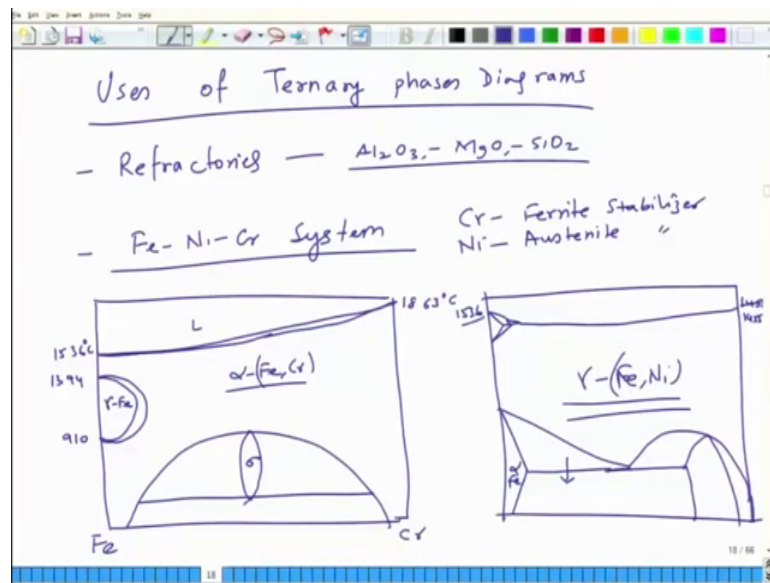 File Edit View Insert Actions Tools Help
Uses of Ternary phases Diagrams
- Refractories — Al2O3,- MgO,- SiO2
- Fe-Ni-Cr System
Cr- Ferrite Stabilizer
Ni- Austenite "
1863°C
L
1536°C
1394
γ-Fe
910
α-(Fe,Cr)
σ
Fe
Cr
1536
1455
γ-(Fe,Ni)
α
Fe
18 / 66
18